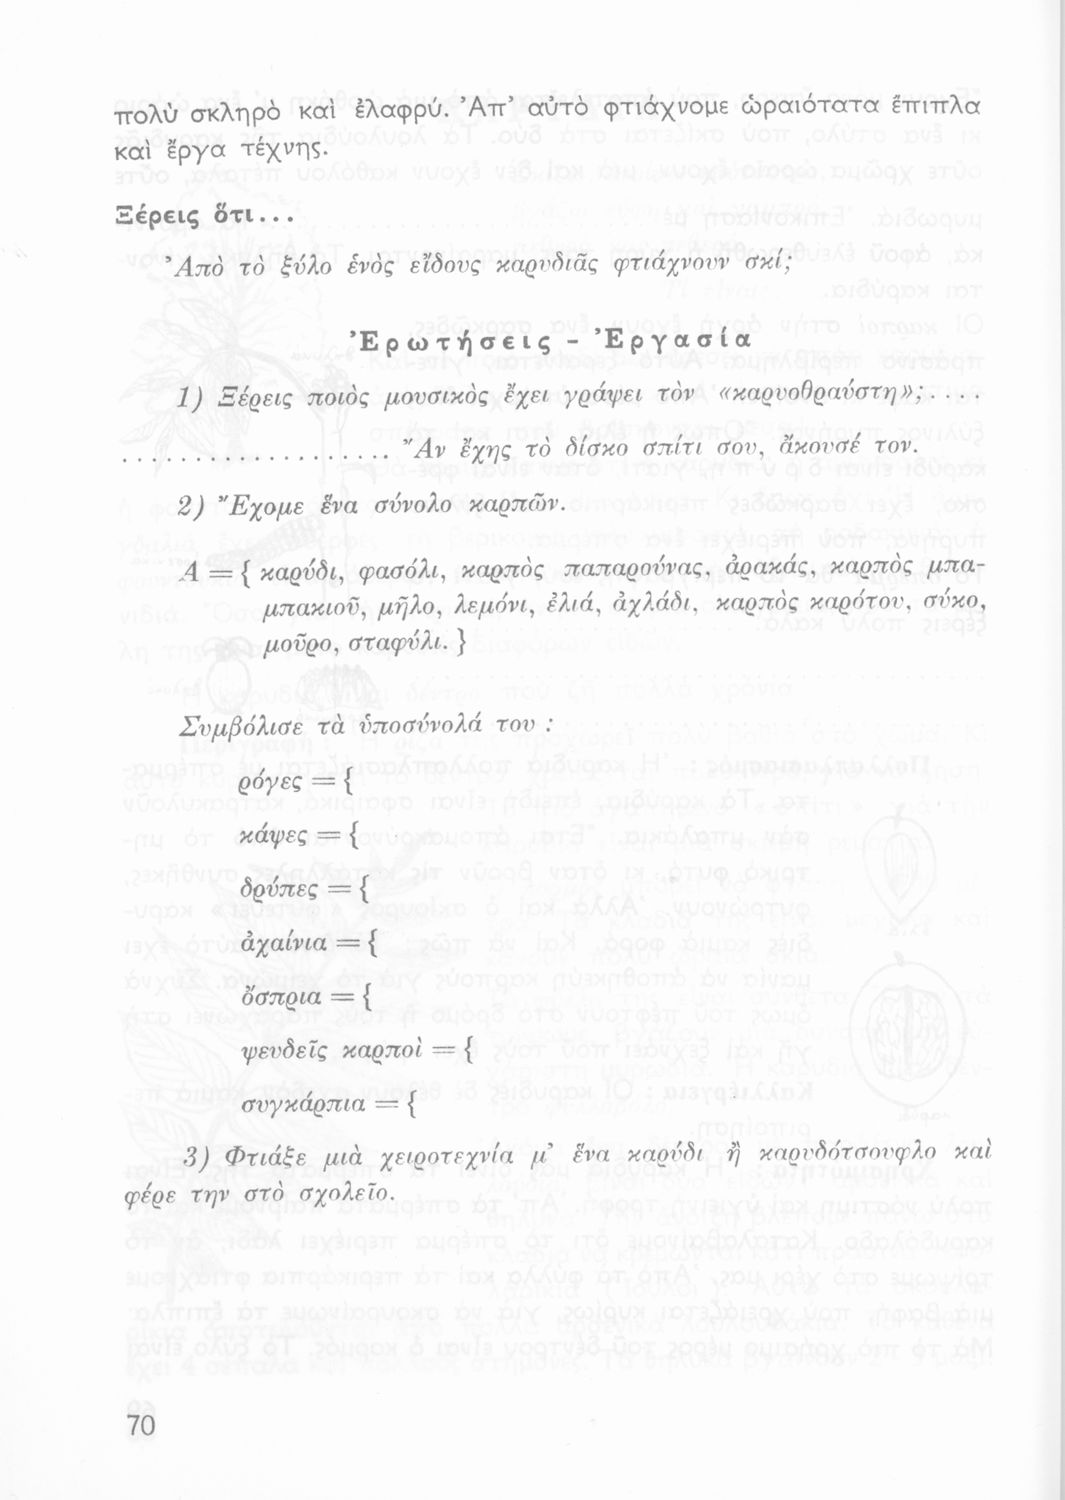 πολὺ σκληρὸ καὶ ἐλαφρύ. Ἀπ' αὐτὸ φτιάχνομε ὡραιότατα ἔπιπλα
καὶ ἔργα τέχνης.
Ξέρεις ὅτι...
Ἀπὸ τὸ ξύλο ἑνὸς εἴδους καρυδιᾶς φτιάχνουν σκί;
Ἐρωτήσεις - Ἐργασία
1) Ξέρεις ποιὸς μουσικὸς ἔχει γράψει τὸν «καρυοθραύστη»;....
.................. Ἂν ἔχης τὸ δίσκο σπίτι σου, ἄκουσέ τον.
2) Ἔχομε ἕνα σύνολο καρπῶν.
Α = { καρύδι, φασόλι, καρπὸς παπαρούνας, ἀρακάς, καρπὸς μπα-
μπακιοῦ, μῆλο, λεμόνι, ἐλιά, ἀχλάδι, καρπὸς καρότου, σύκο,
μοῦρο, σταφύλι. }
Συμβόλισε τὰ ὑποσύνολά του :
ρόγες = {
κάψες = {
δρύπες = {
ἀχαίνια = {
ὄσπρια = {
ψευδεῖς καρποὶ = {
συγκάρπια = {
3) Φτιάξε μιὰ χειροτεχνία μ' ἕνα καρύδι ἢ καρυδότσουφλο καὶ
φέρε την στὸ σχολεῖο.
70